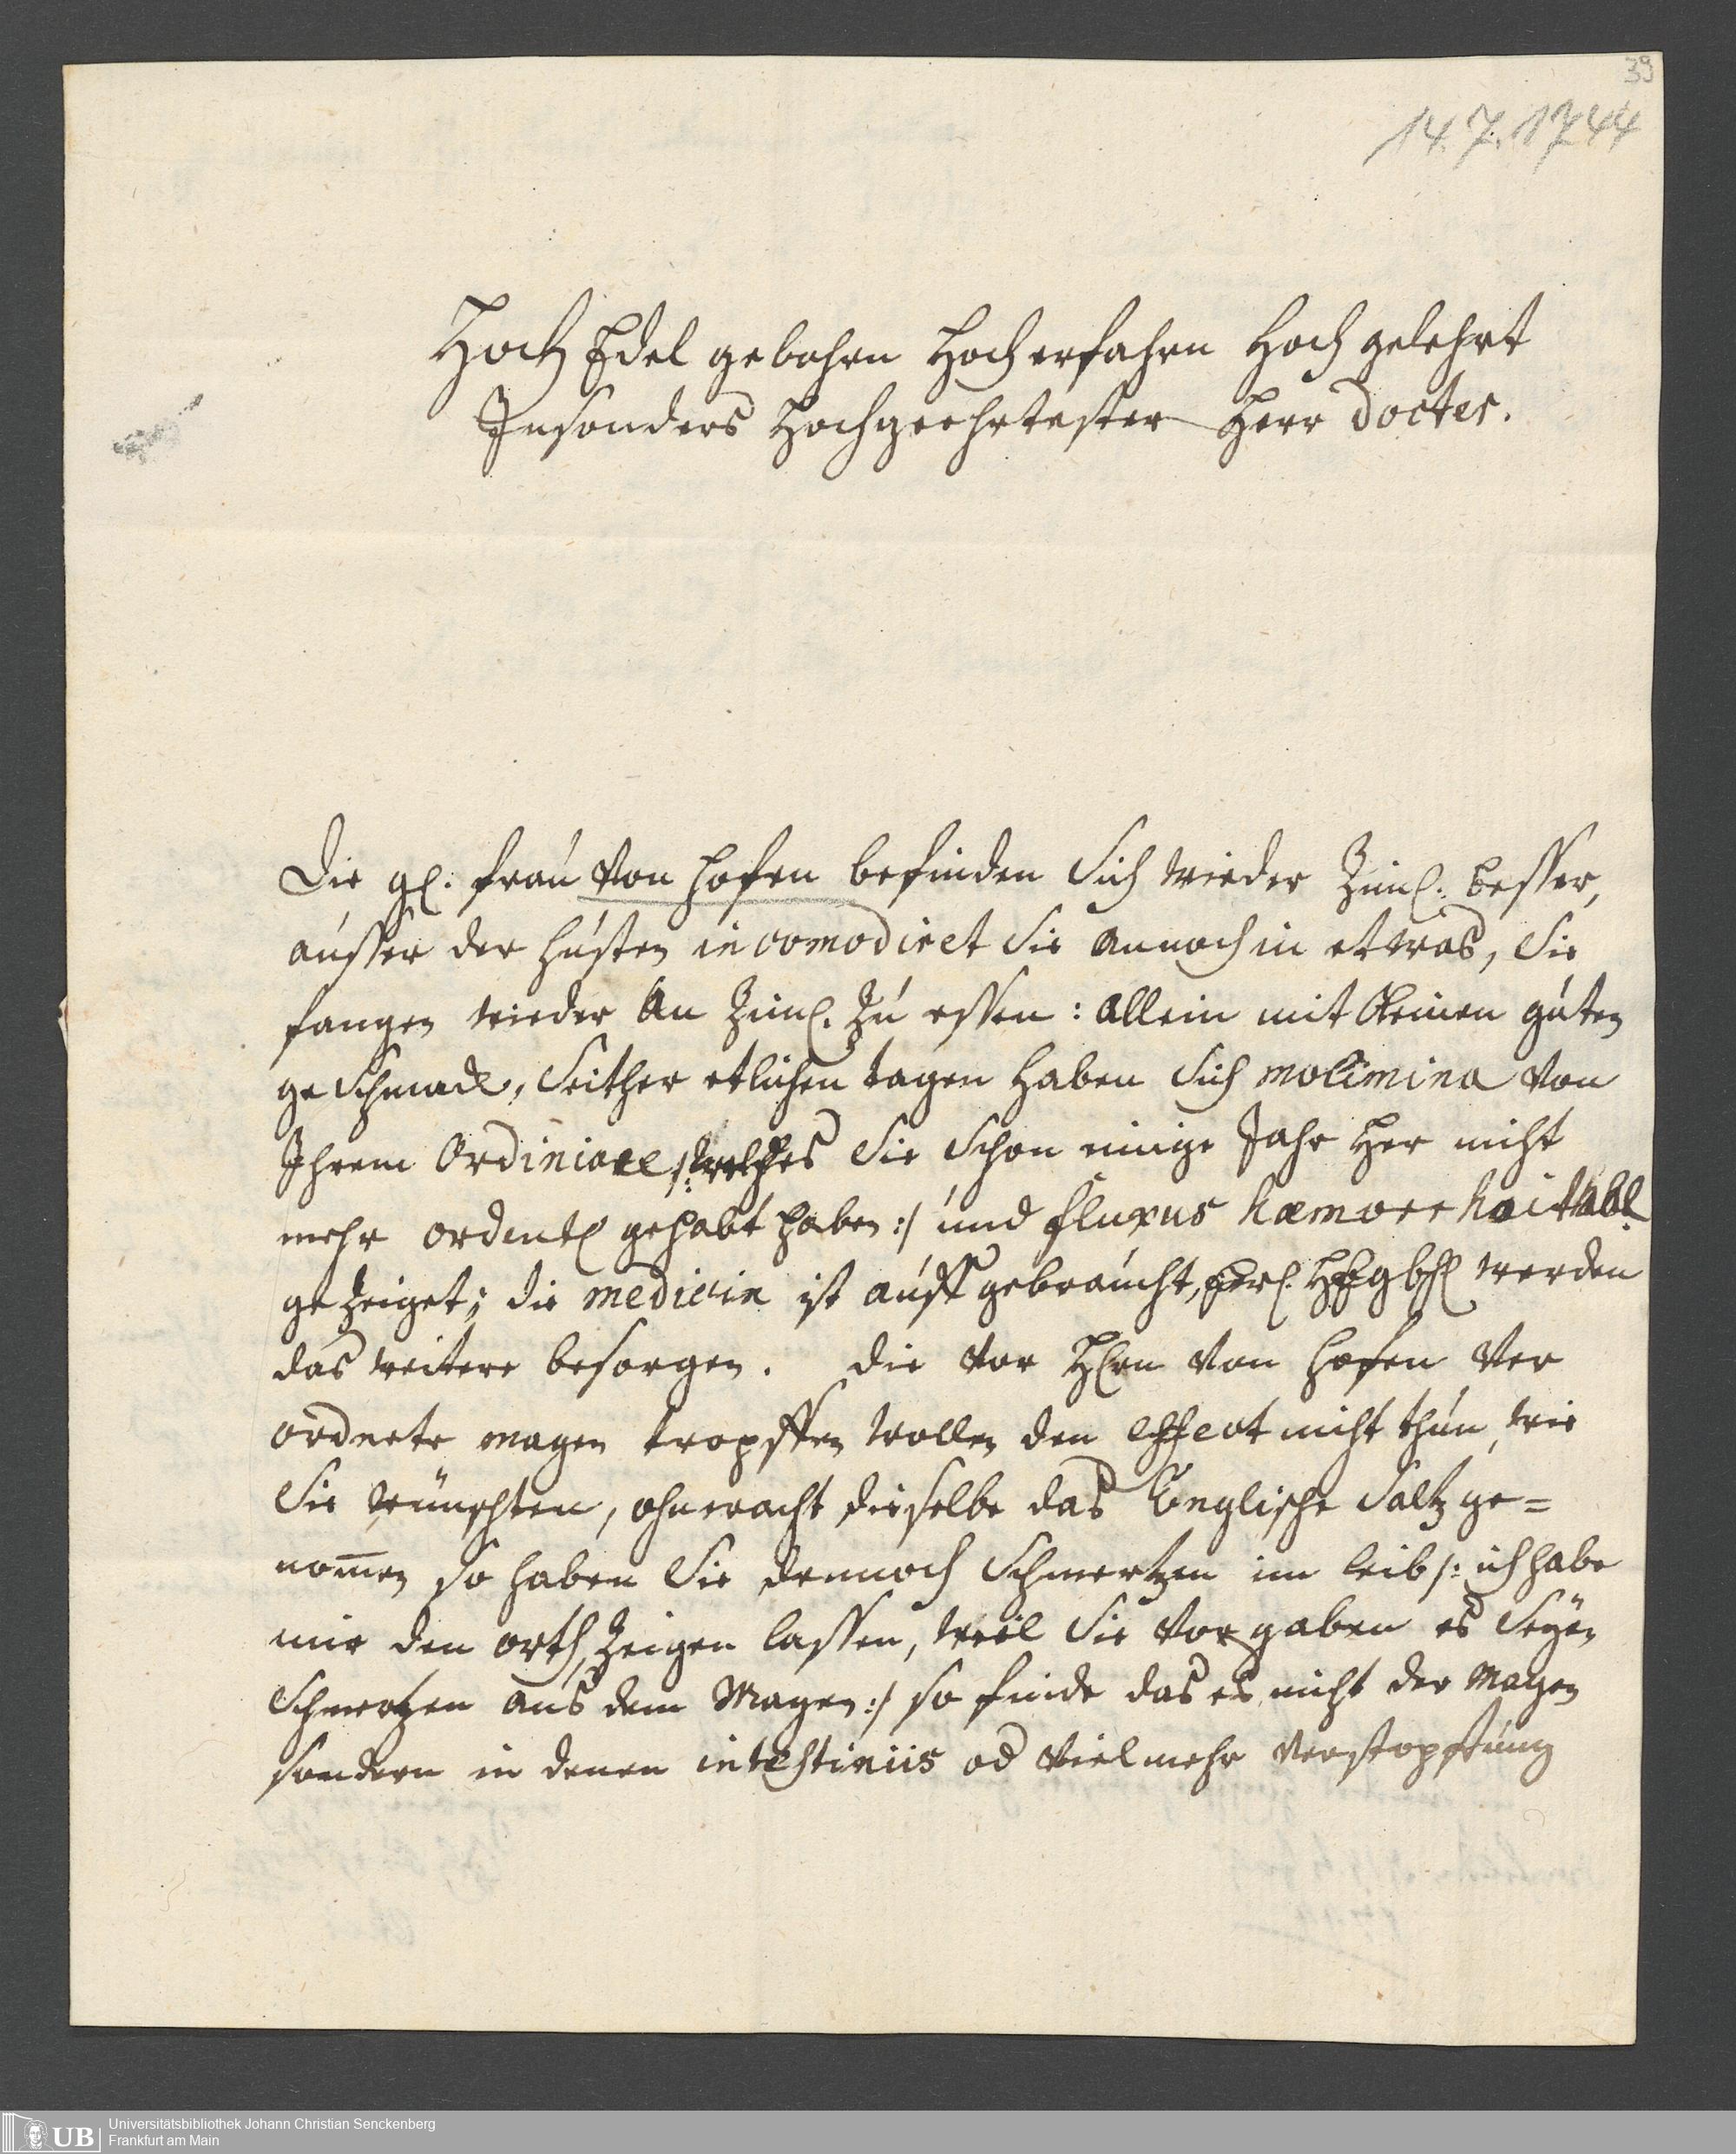 39
14.7.1744
Hoch Edel gebohrn Hoch erfahrn Hoch gelehrt
Insonders Hochgeehrtester Herr Docter.
Die gl. frau von Hofen befinden Sich wieder Ziml. besser,
ausser der husten incomodiret Sie annoch in etwas, Sie
fangen wieder an Ziml. Zu essen: allein mit keinen guten
geschmack, Seither etlichen tagen haben Sich molimina von
Ihrem Ordiniare /: welches Sie Schon einige Jahr her nicht
mehr ordentl gehabt haben :/ und fluxus
gezeiget; die medicin ist auff gebraucht, werden
das weitere besorgen. Die vor Hrn von Hofen ver
ordnete magen tropffen wollen den effect nicht thun, wie
Sie wünschten, ohneracht dieselbe das Englische Saltz ge=
nom̅en so haben Sie dennoch Schmertzen im leib /: ich habe
mir den orth Zeigen lassen, weil Sie vorgaben es Seyen
Schmertzen aus dem Magen :/ so finde das es nicht der Magen
sondern in denen intestiniis od vielmehr verstopffung
UB
Universitätsbibliothek Johann Christian Senckenberg
Frankfurt am Main